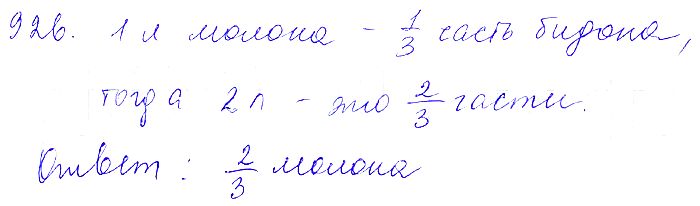 926. 1 л молока - 1/3 часть бидона,
тогда 2 л - это 2/3 части.
Ответ: 2/3 молока